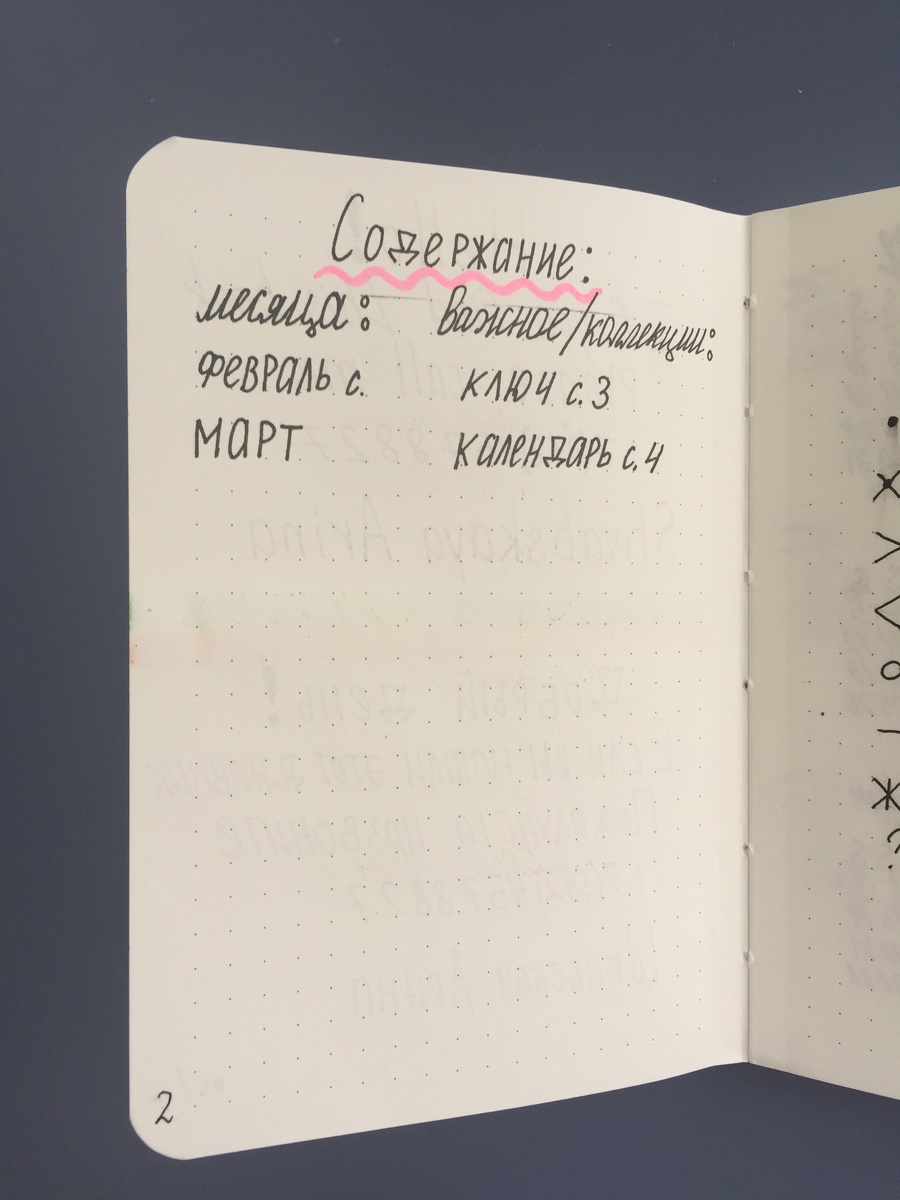 Содержание:
месяца: важное/коллекции:
ФЕВРАЛЬ с. КЛЮЧ с. 3
МАРТ КАЛЕНДАРЬ с. 4
2